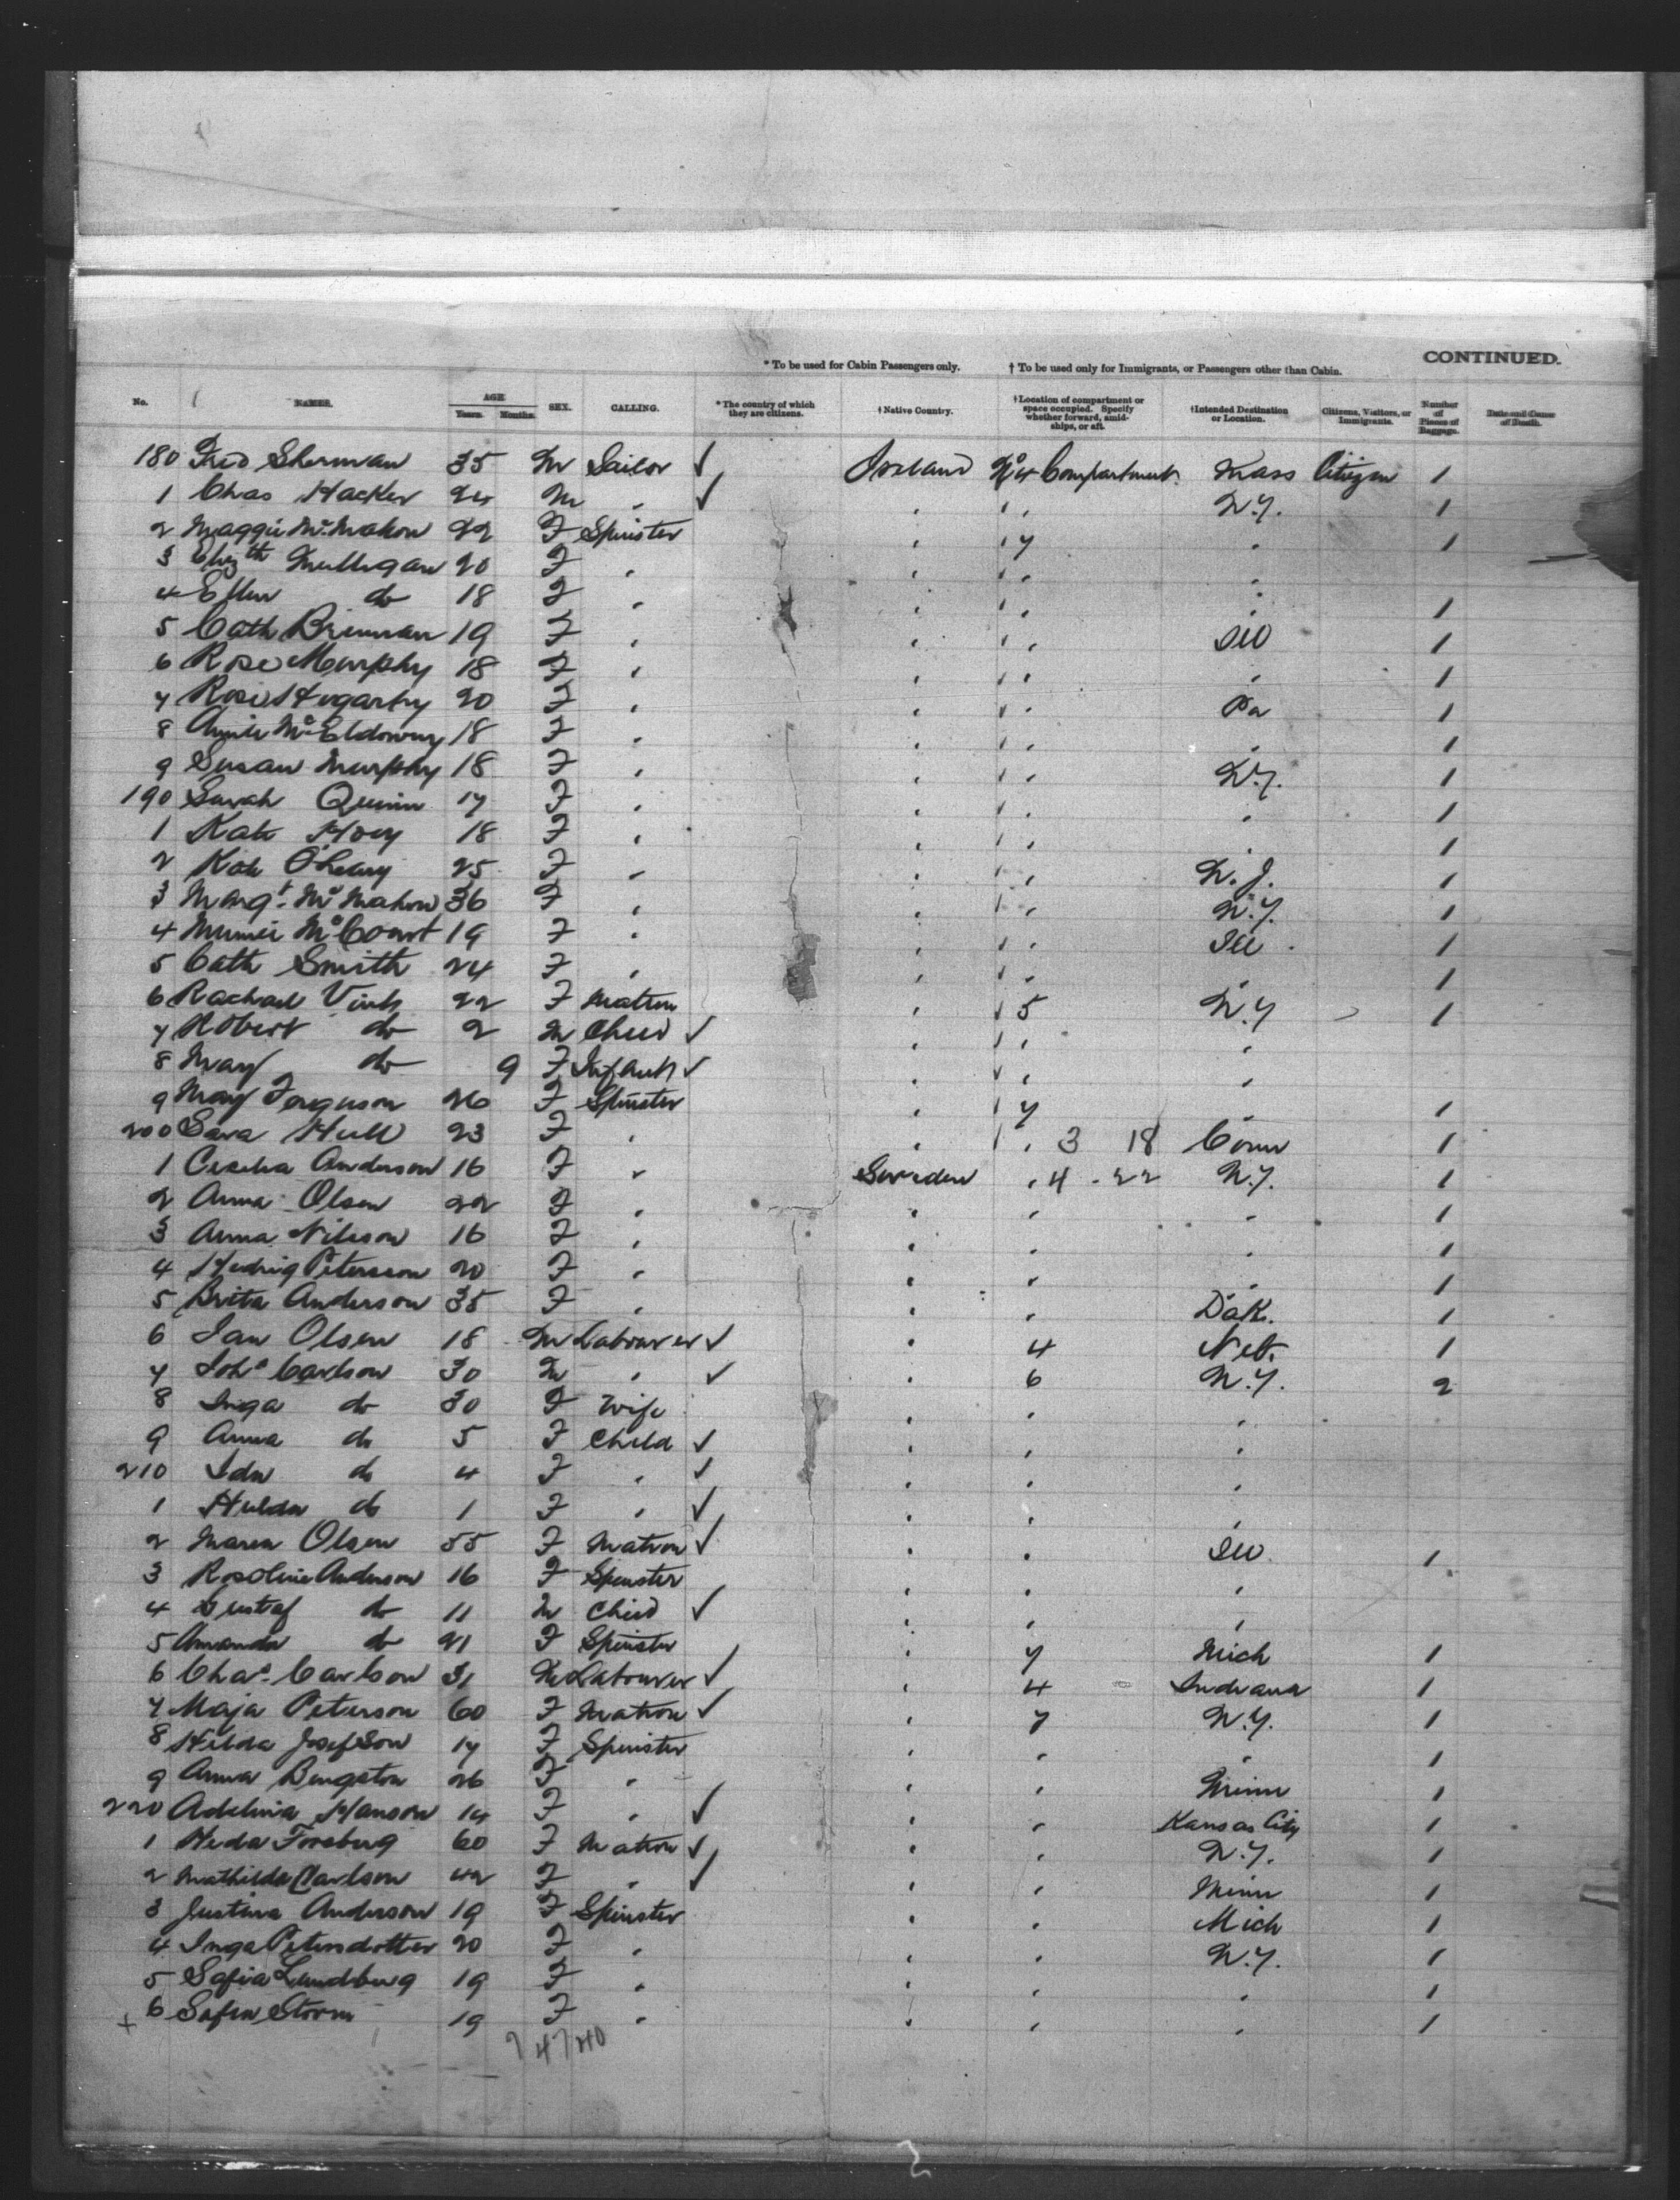 CONTINUED.
* To be used for Cabin Passengers only. † To be used only for Immigrants, or Passengers other than Cabin.
No. NAMES. AGE Years. Months. SEX. CALLING. * The country of which they are citizens. † Native Country. † Location of compartment or space occupied. Specify whether forward, amidships, or aft. † Intended Destination or Location. Citizens, Visitors, or Immigrants. Number of Pieces of Baggage. Date and Cause of Death.
180 Fred Sherman 35 M Sailor ✓ Ireland No 4 Compartment Mass Citizen 1
1 Chas Hacker 24 M " ✓ " " " N.Y. 1
2 Maggie McMahon 22 F Spinster " " 7 " 1
3 Elizth Mulligan 20 F " " " " "
4 Ellen do 18 F " " " " " 1
5 Cath Brennan 19 F " " " " Ill 1
6 Rose Murphy 18 F " " " " " 1
7 Rose Hogarty 20 F " " " " Pa 1
8 Annie McEldowny 18 F " " " " " 1
9 Susan Murphy 18 F " " " " N.Y. 1
190 Sarah Quinn 17 F " " " " " 1
1 Kate Hoey 18 F " " " " " 1
2 Kate O'Leary 25 F " " " " N.J. 1
3 Margt McMahon 36 F " " " " N.Y. 1
4 Minnie McCourt 19 F " " " " Ill 1
5 Cath Smith 24 F " " " " " 1
6 Rachael 22 F Matron " " 5 N.Y 1
7 Robert do 2 M Child ✓ " " " "
8 May do 9 F Infant ✓ " " " "
9 May Ferguson 26 F Spinster " " 7 " 1
200 Sara Hull 23 F " " " " 3 18 Conn 1
1 Cecelia Anderson 16 F " Sweden " 4 - 22 N.Y. 1
2 Anna Olsen 22 F " " " " 1
3 Anna Nilsson 16 F " " " " 1
4 Hedvig Petersson 20 F " " " " 1
5 Brita Anderson 35 F " " " Dak. 1
6 Jan Olsen 18 M Labourer ✓ " 4 Neb. 1
7 Johs Carlson 30 M " ✓ " 6 N.Y. 2
8 Inga do 30 F Wife " " "
9 Anna do 5 F Child ✓ " " "
210 Ida do 4 F " ✓ " " "
1 Hulda do 1 F " ✓ " " "
2 Maren Olsen 55 F Matron ✓ " " Ill. 1
3 Rosoline Anderson 16 F Spinster " " "
4 Gustaf do 11 M Child ✓ " " "
5 Amanda do 21 F Spinster " 7 Mich 1
6 Chas. Carlson 31 M Labourer ✓ " 4 Indiana 1
7 Maja Peterson 60 F Matron ✓ " 7 N.Y. 1
8 Hilda Josefson 17 F Spinster " " " 1
9 Anna Bengston 26 F " " " Minn 1
220 Adelina Hanson 14 F " ✓ " " Kansas City 1
1 Heda Forsberg 60 F Matron ✓ " " N.Y. 1
2 Mathilda Carlson 42 F " ✓ " " Minn 1
3 Justina Anderson 19 F Spinster " " Mich 1
4 Inga Petersdotter 20 F " " " N.Y. 1
5 Safia Lundburg 19 F " " " " 1
+ 6 Safia Storm 19 F " " " " 1